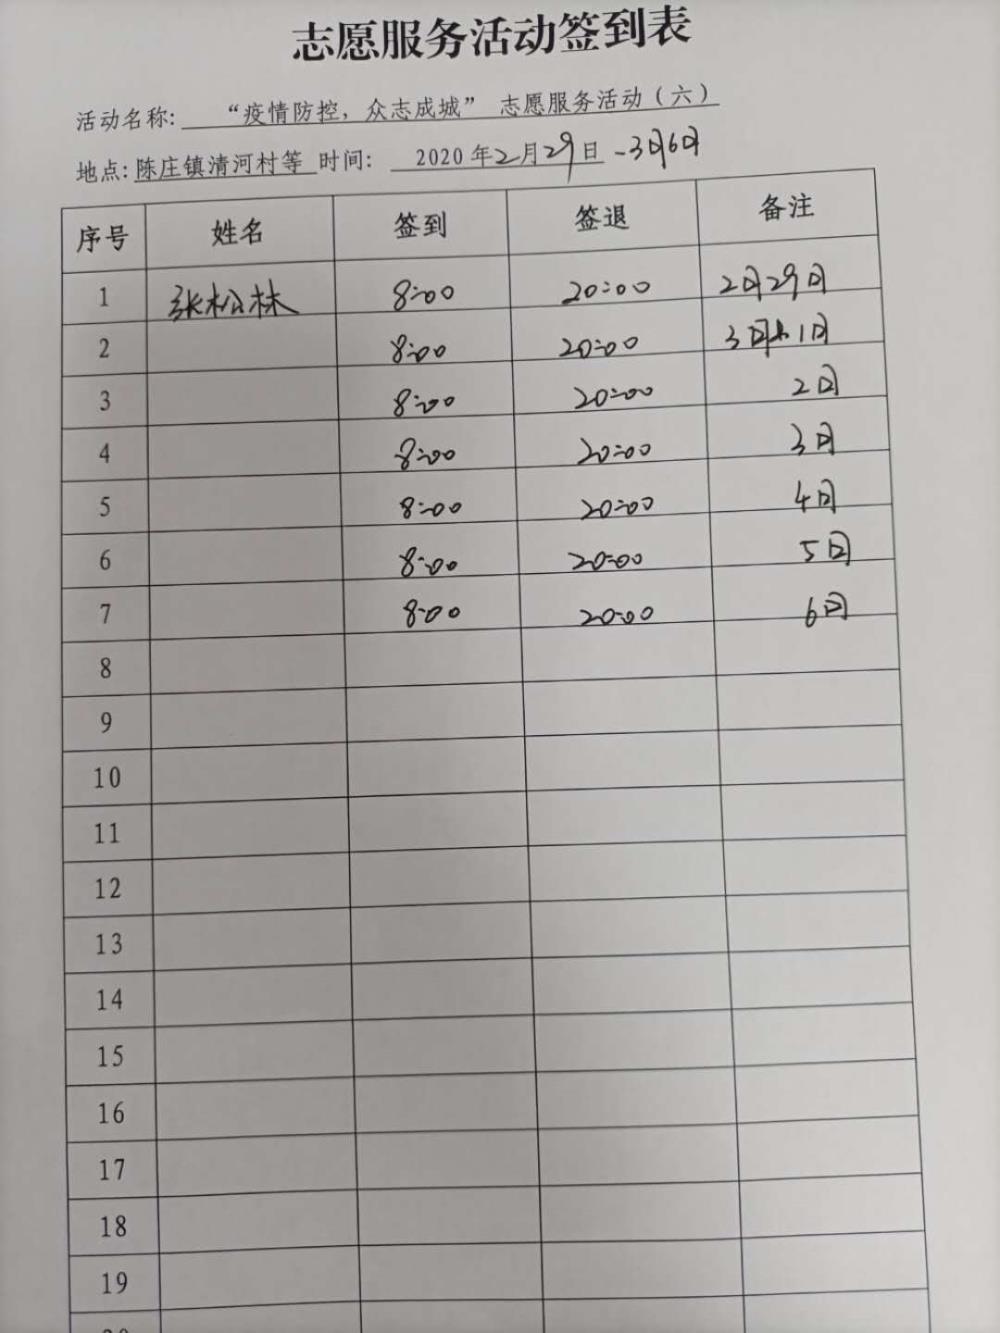 志愿服务活动签到表
活动名称: “疫情防控，众志成城” 志愿服务活动（六）
地点: 陈庄镇清河村等 时间: 2020年2月29日-3月6日
序号 姓名 签到 签退 备注
1 张松林 8:00 20:00 2月29日
2 8:00 20:00 3月1日
3 8:00 20:00 2日
4 8:00 20:00 3日
5 8:00 20:00 4日
6 8:00 20:00 5日
7 8:00 20:00 6日
8
9
10
11
12
13
14
15
16
17
18
19